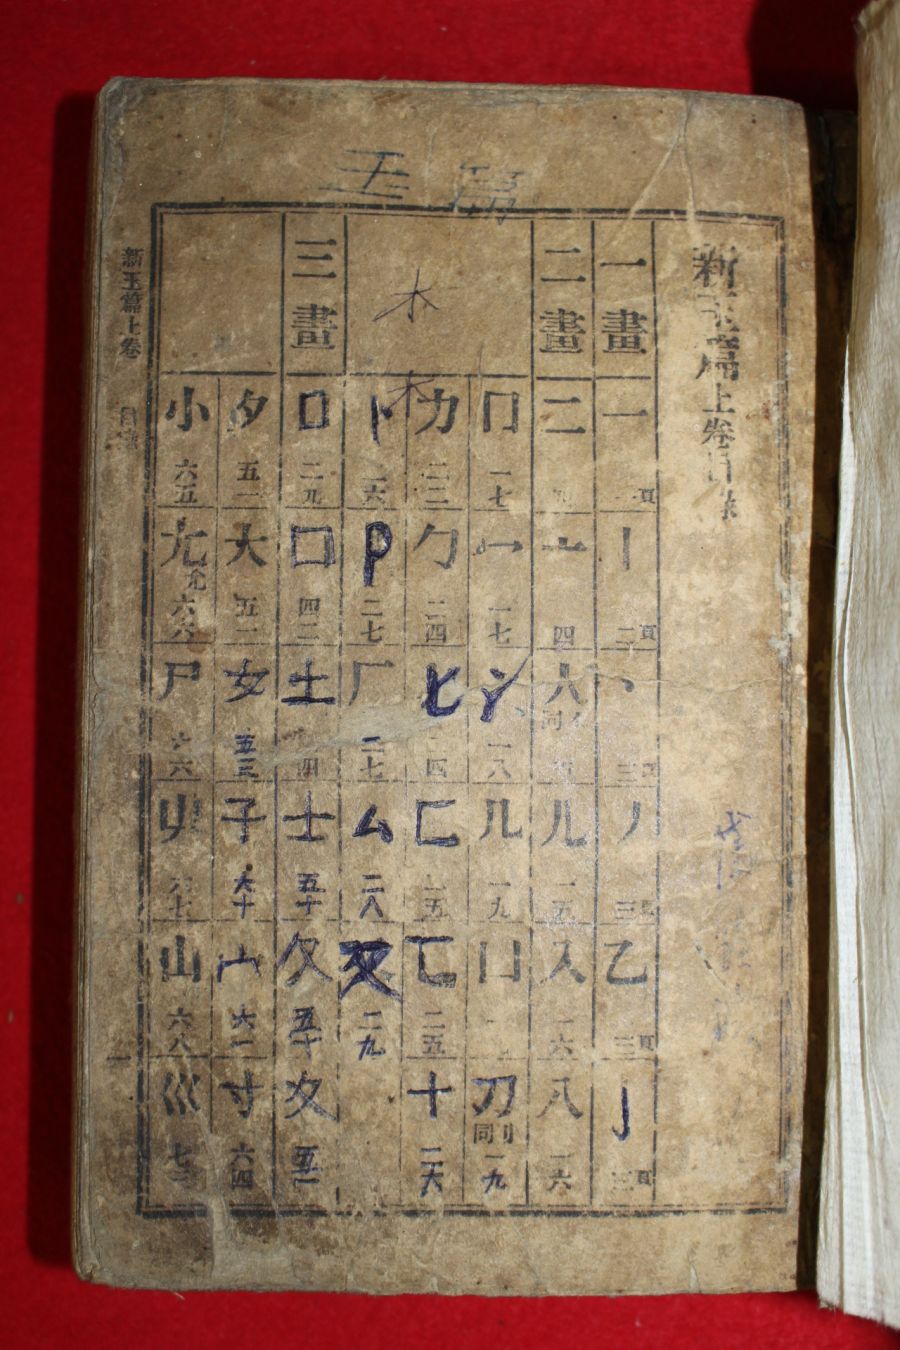 玉篇
新玉篇上卷目錄
一畫
一 一頁
丨 二頁
丶 三頁
丿 三頁
乙 三頁
亅 三頁
二畫
二 四
亠 四
人 同亻
儿 一五
入 一六
八 一六
冂 一七
冖 一七
冫 一八
几 一九
凵
刀 同刂 一九
力 二三
勹 二四
匕 二四
匚 二五
匸 二五
十 二六
卜 二六
卩 二七
厂 二七
厶 二八
又 二九
木
木
三畫
口 二九
囗 四二
土 四
士 五十
夂 五十
夊 五一
夕 五一
大 五二
女 五三
子 六十
宀 六一
寸 六四
小 六五
尢 尣 六六
尸 六六
屮 六七
山 六八
巛 七一
新玉篇上卷 目錄